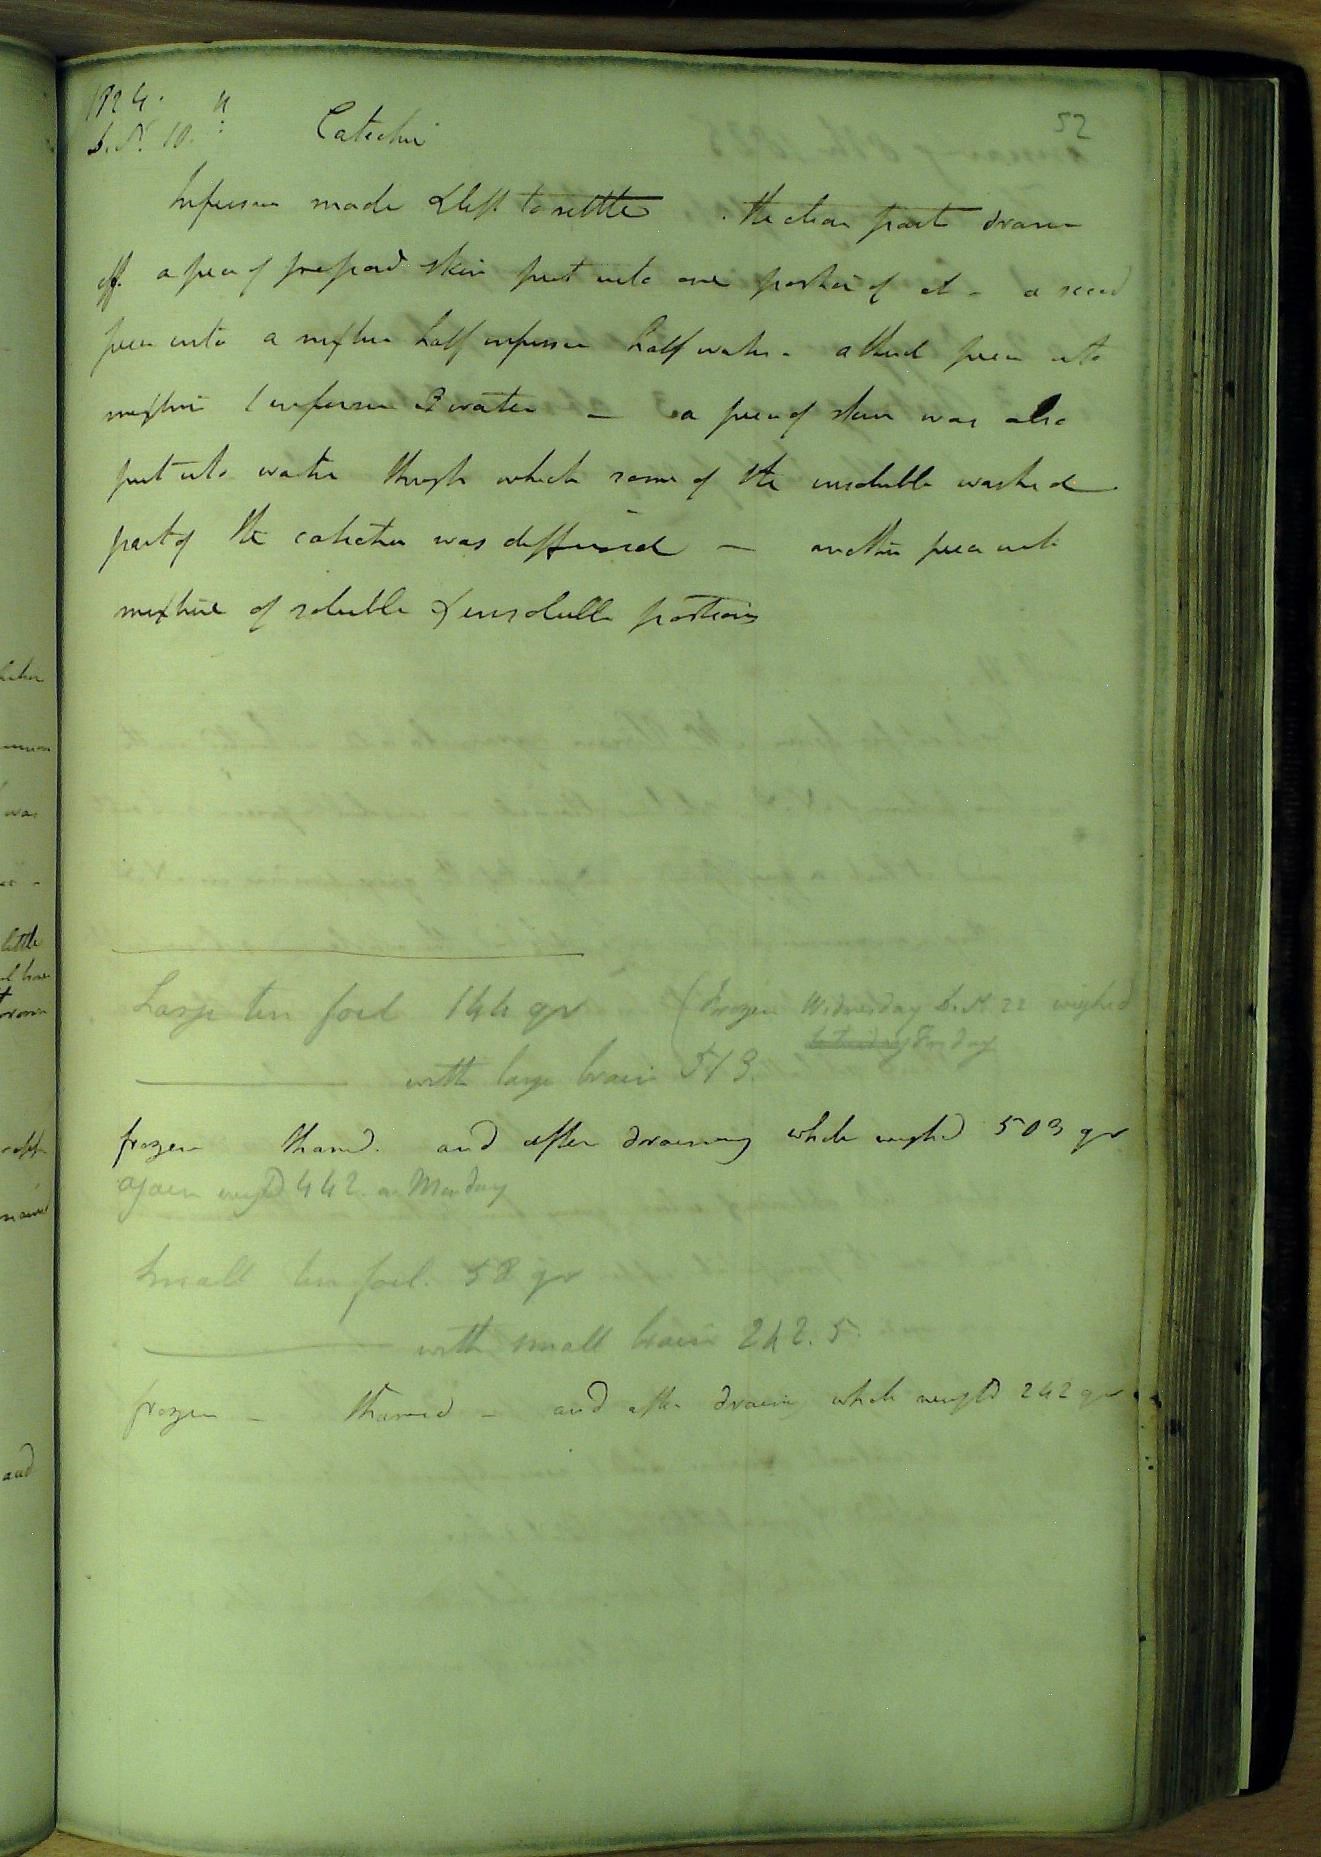 52
1824.
Catechu
Infusion made & left to settle. the clear part drawn
off. a piece of prepared skin put into one portion of it - a second
piece into a mixture half infusion half water - a third piece into
mixture 1 infusion 3 water - a piece of skin was also
put into water through which some of the insoluble washed
part of the catechu was diffused - another piece into
mixture of soluble & insoluble portions
Large tin foil 144 gr (Frozen Wednesday 22 weighed
Saturday Sunday
with large brain 513.
frozen thawed. and after draining whole weighed 503 gr
again weighd 442. on Monday
Small tin foil. 58 gr
with small brain 242.5.
frozen - thawed - and after draining whole weighd 242 gr
little
was
and